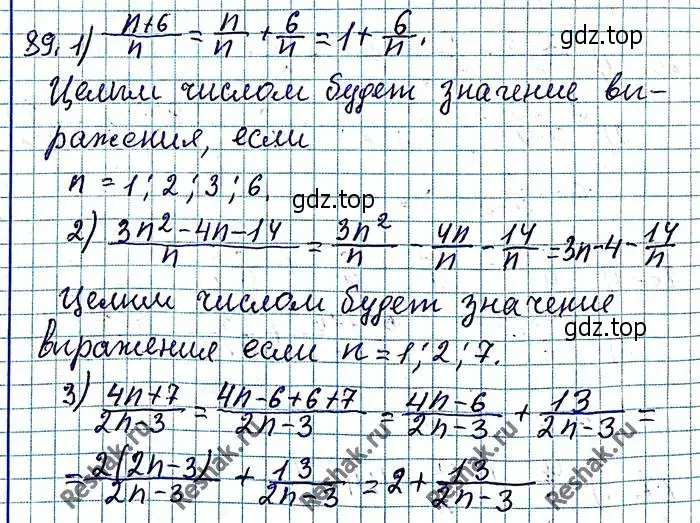 89. 1) (n+6)/n = n/n + 6/n = 1 + 6/n.
Целым числом будет значение вы-
ражения, если
n = 1; 2; 3; 6.
2) (3n²-4n-14)/n = 3n²/n - 4n/n - 14/n = 3n-4-14/n
Целым числом будет значение
выражения если n = 1; 2; 7.
3) (4n+7)/(2n-3) = (4n-6+6+7)/(2n-3) = (4n-6)/(2n-3) + 13/(2n-3) =
= 2(2n-3)/(2n-3) + 13/(2n-3) = 2 + 13/(2n-3)
gdz.top
gdz.top
gdz.top
gdz.top
Reshak.ru
Reshak.ru
Reshak.ru
Reshak.ru